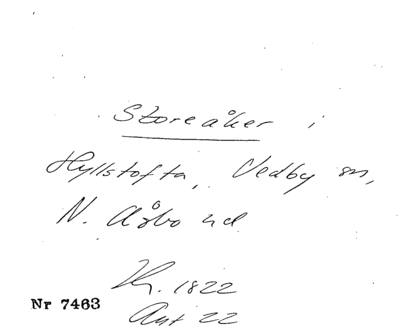 Storeåker i
Hyllstofta, Vedby sn,
N. Åsbo hd
1822
Nr 7463
Akt 22